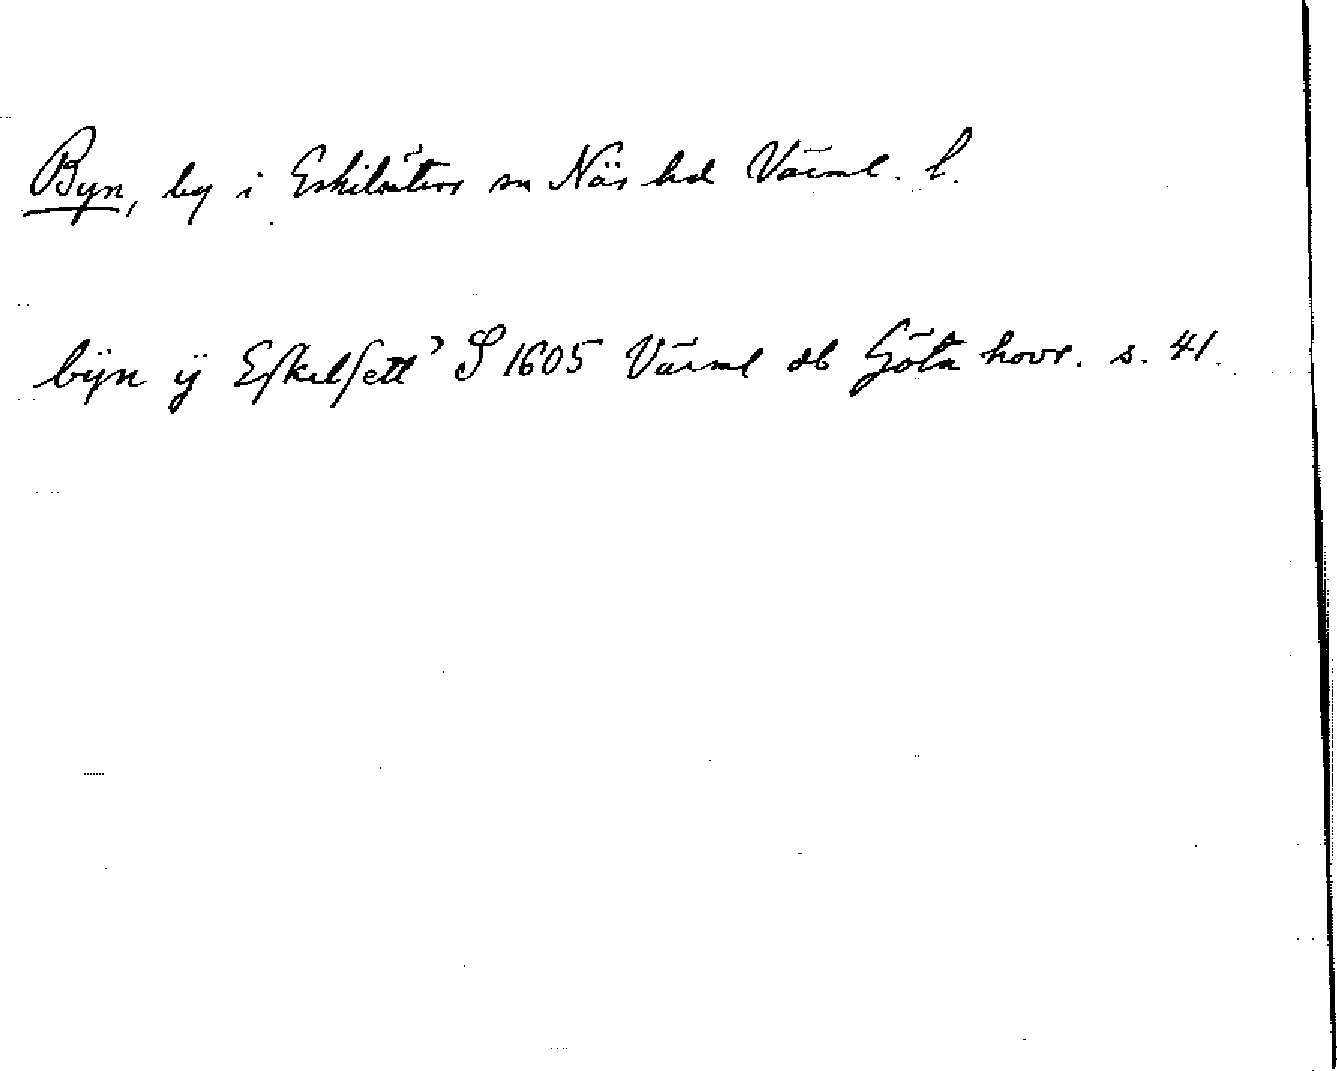 Byn, by i Eskilsäters sn Näs hd Värml. l.
bÿn ÿ Eſkelſett’ S 1605 Värml db Göta hovr. s. 41.